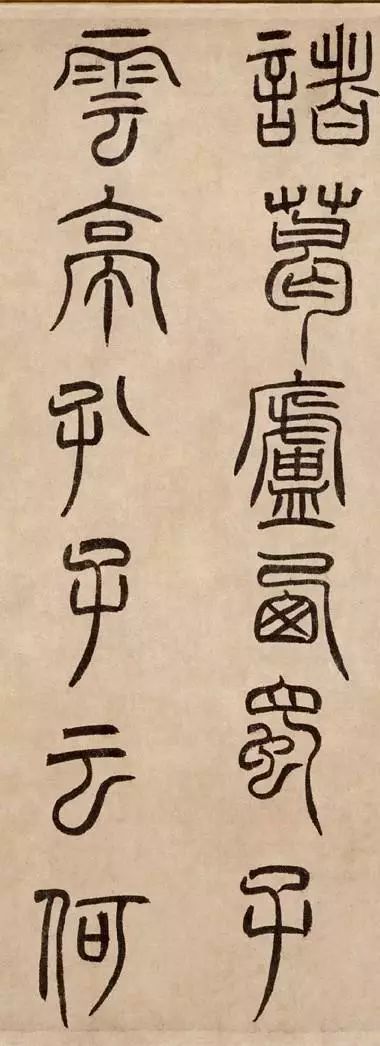 諸葛廬西蜀子
雲亭孔子云何